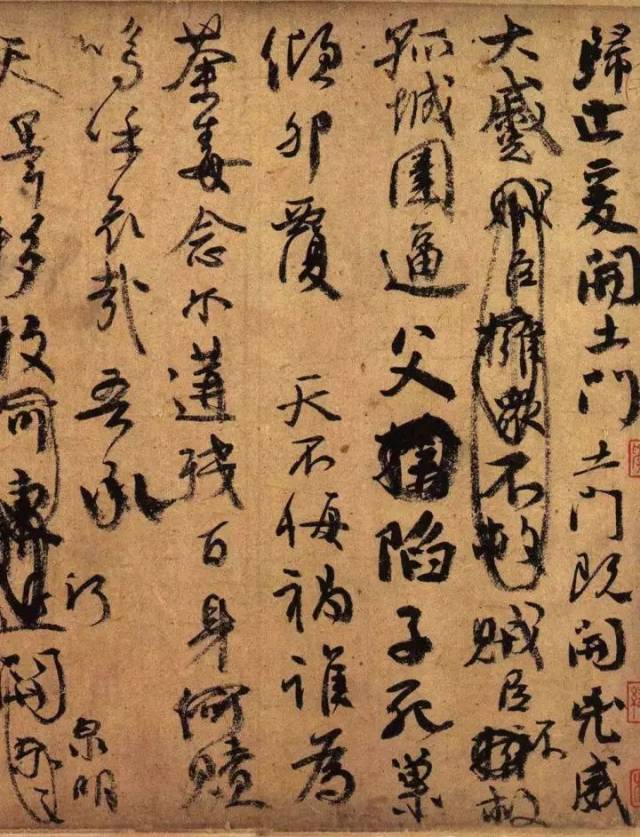 歸止爰開土門土門既開凶威
大蹙賊臣擁眾不救賊臣不救
孤城圍逼父陷子死巢
傾卵覆 天不悔禍誰為
荼毒念爾遘殘百身何贖
嗚呼哀哉吾承
天澤移牧河
河
關
泉明